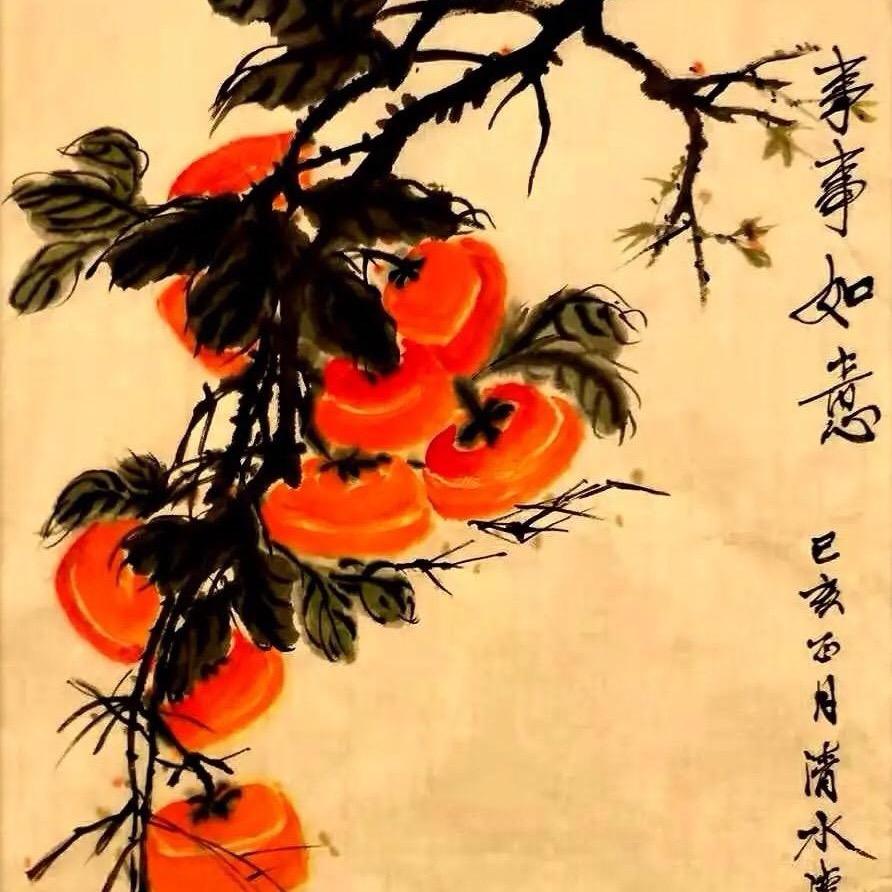 事事如意
己亥月清水